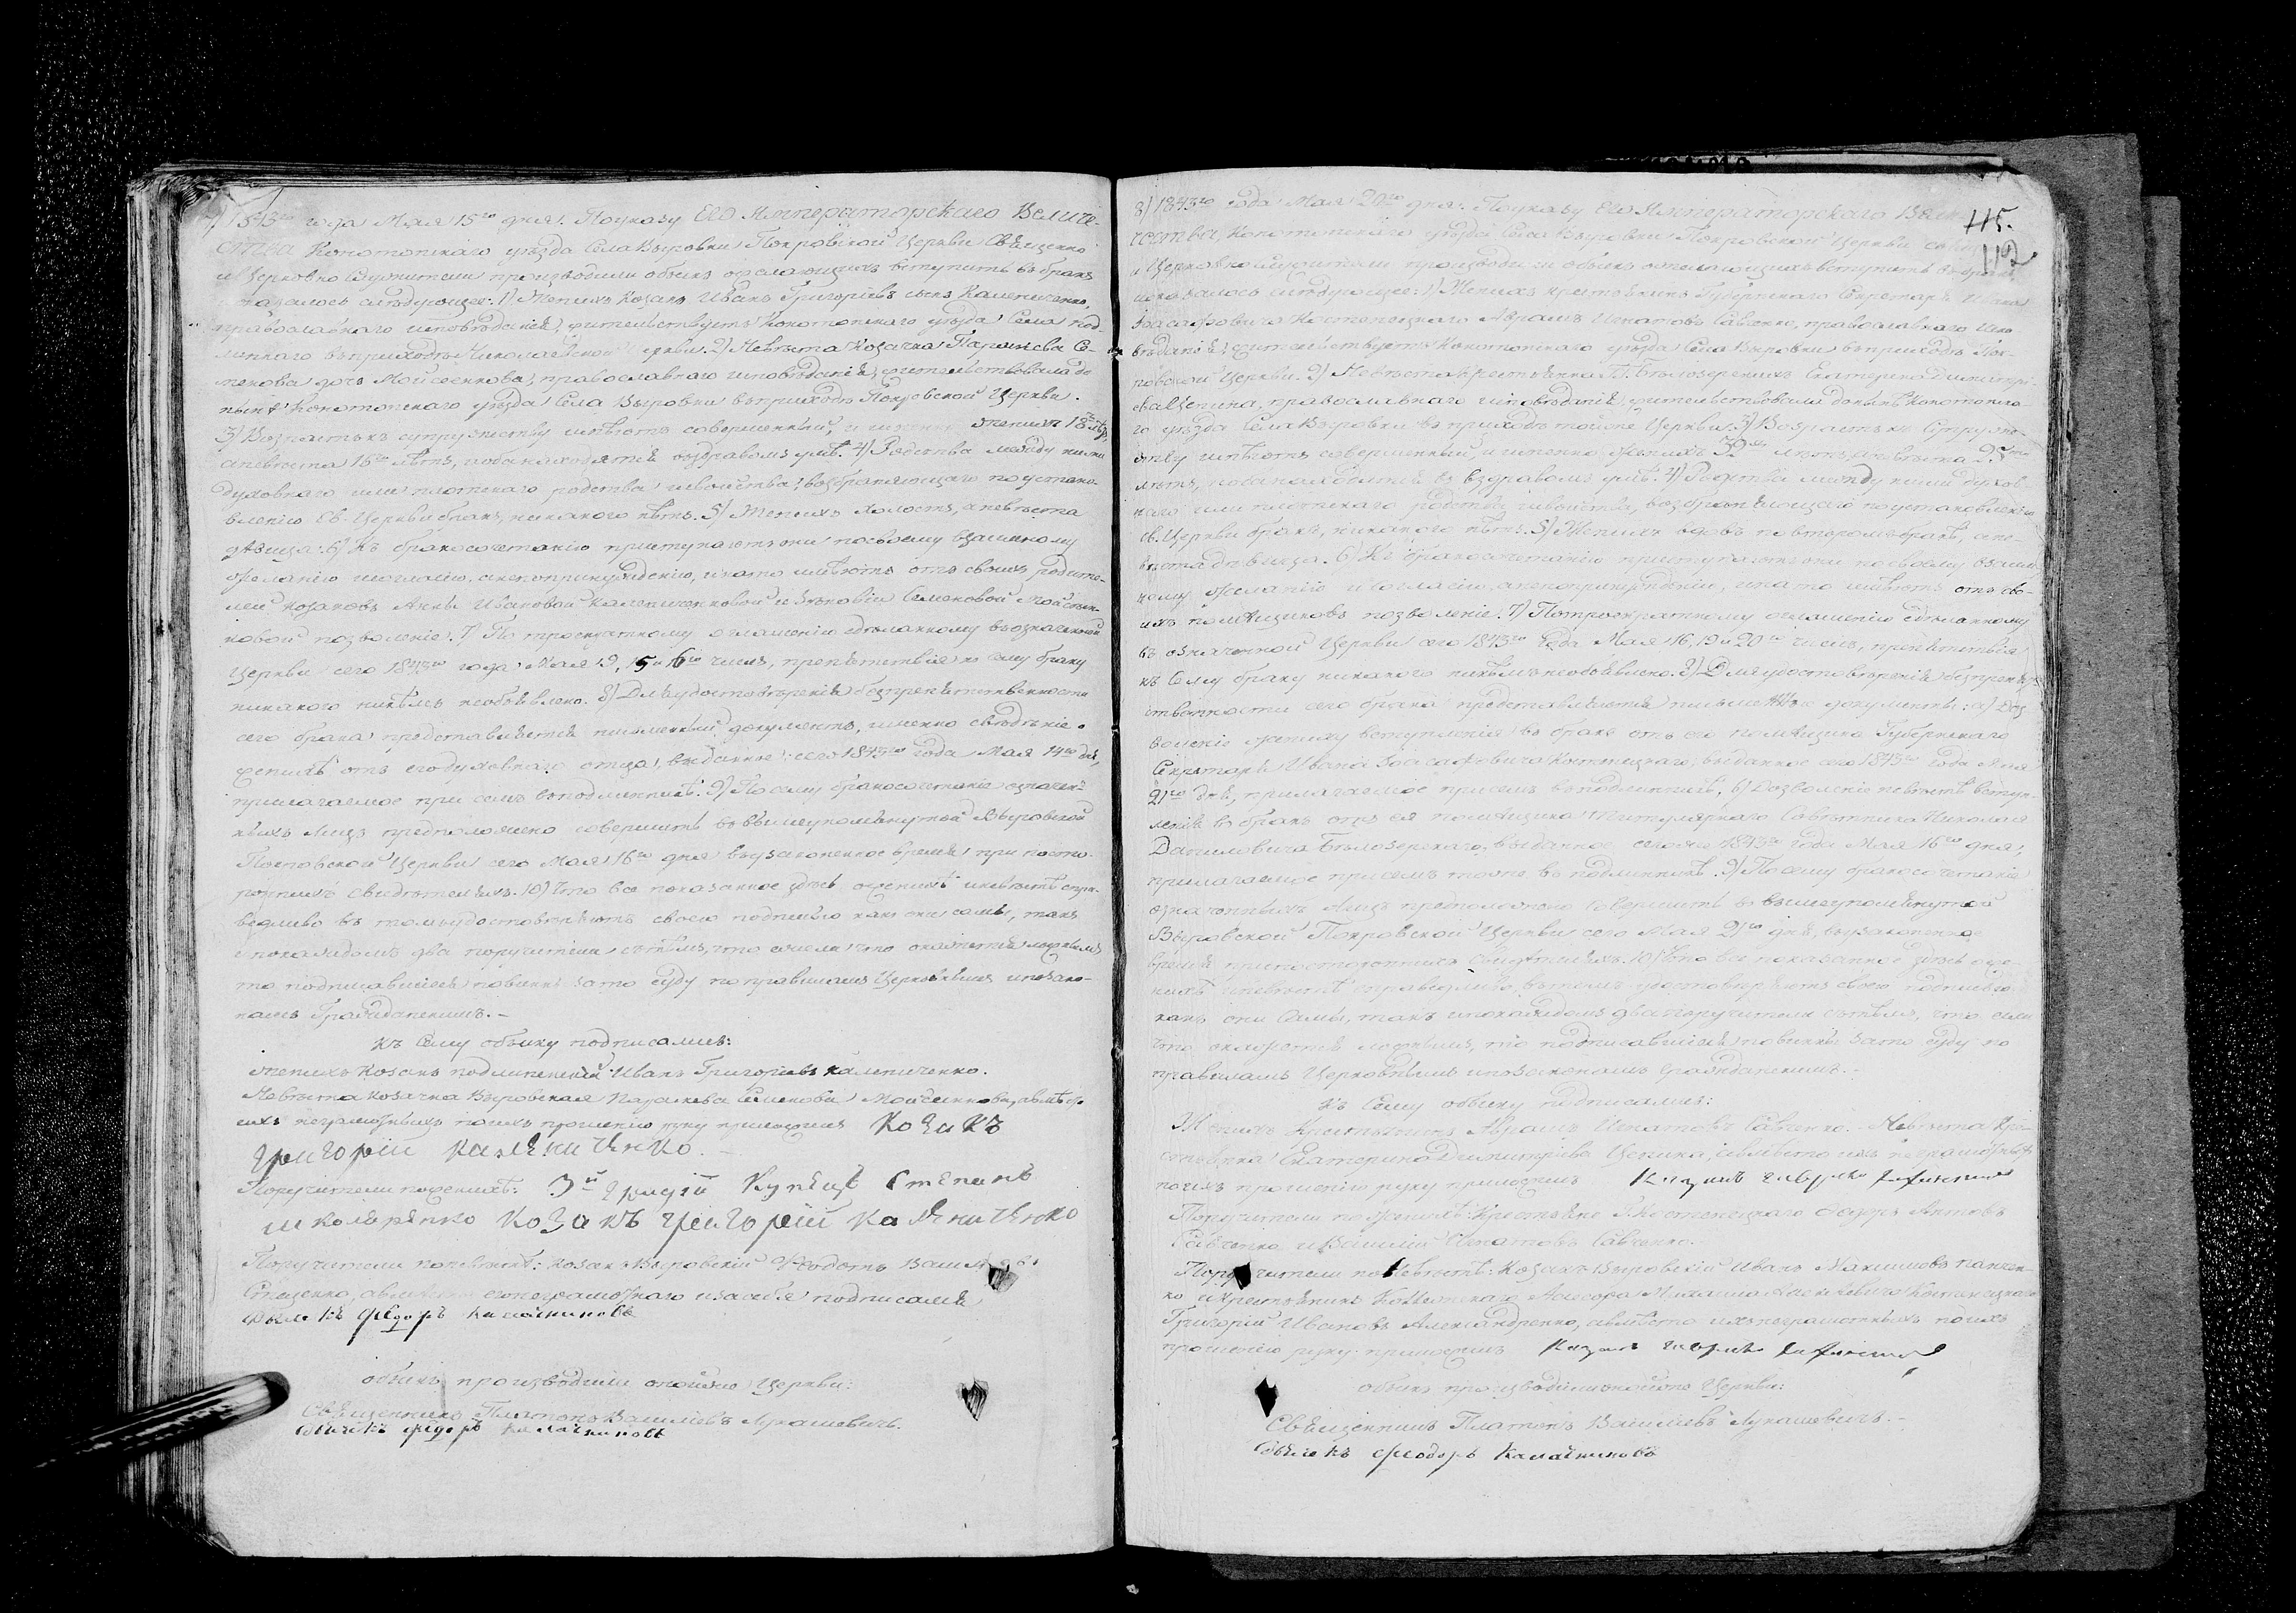 7) 1843го года Мая 15го дня. По указу Его Императорскаго Величе-
ства Конотопскаго уѣзда Села Выровки Покровской Церкви Священно
и Церковно служители производили обыскъ о желающихъ вступить въ бракъ
и оказалось слѣдующее: 1) Женихъ Козакъ Иванъ Григоріевъ сынъ Калениченко,
православнаго исповѣданія, жительствуетъ Конотопскаго уѣзда Села Под-
липнаго въ приходѣ Николаевской Церкви. 2) Невѣста козачка Параскева Се-
менова дочь Мойсеенкова, православнаго исповѣданія, жительствовала до
нынѣ Конотопскаго уѣзда Села Выровки въ приходѣ Покровской Церкви.
3) Возрастъ къ супружеству имѣютъ совершенный, и именно женихъ 18 лѣтъ,
а невѣста 16ть лѣтъ, и оба находятся въ здравомъ умѣ. 4) Родства между ними
духовнаго или плотскаго родства и свойства, возбраняющаго по устано-
влению Св. Церкви бракъ, никакого нѣтъ. 5) Женихъ холостъ, а невѣста
дѣвица. 6) Къ бракосочетанію приступаютъ они по своему взаимному
желанію и согласію, а не по принужденію, и на то имѣютъ отъ своихъ родите-
лей козаковъ Анны Ивановой Калениченковой и Зѣновіи Семеновой Мойсеен-
ковой позволеніе. 7) По троекратному оглашенію сдѣланному въ означенной
Церкви сего 1843го года Мая 9, 15 и 16го чиселъ, препятствія къ сему браку
никакого никѣмъ не объявлено. 8) Для удостовѣренія безпрепятственности
сего брака представляется письменный документъ, именно свѣдѣніе о
женихѣ отъ его духовнаго отца, выданное сего 1843го года Мая 14го дня,
прилагаемое при семъ въ подлинникѣ. 9) По сему бракосочетаніе означен-
ныхъ лицъ предположено совершить въ вышеупомянутой Выровской
Покровской Церкви сего Мая 16го дня въ узаконенное время при посто-
роннихъ свидѣтеляхъ. 10) Что все показанное здѣсь о женихѣ и невѣстѣ спра-
ведливо въ томъ удостовѣряютъ своею подписью какъ они сами, такъ
и по каждомъ два поручители съ тѣмъ, что если что окажется ложнымъ
то подписавшіеся повинны за то суду по правиламъ Церковнымъ и по зако-
намъ Гражданскимъ.–
Къ Сему обыску подписались:
женихъ Козакъ подлипенскій Иванъ Григорьевъ Калениченко.
Невѣста козачка Выровская Параскева Семенова Мойсеенкова, а вмѣсто
ихъ неграмотныхъ по ихъ прошенію руку приложилъ Козакъ
григорій каленичѣнко.–
Поручители по женихѣ: 3й гилдіи Купецъ Степанъ
школяренко козакъ григорій каленичѣнко
Поручители по невѣстѣ: козакъ Выровскій Ѳеодотъ
Стеценко, а вмѣсто его неграмотнаго и за себя подписался
Дьячекъ Федоръ Калашниковъ
обыскъ производили онойже Церкви:
Священникъ Платонъ Василіевъ Лукашевичъ.
Дьячекъ Федоръ Калашниковъ
115.
112
8) 1843го года Мая 20го дня. По указу Его Императорскаго Вели-
чества, Конотопскаго уѣзда Села Выровки Покровской Церкви
и Церковно служители производили обыскъ о желающихъ вступить въ бракъ,
и оказалось слѣдующее: 1) Женихъ крестьянинъ Губернскаго Секретаря Ивана
Іоасафовича Костенецкаго Аврамъ Игнатовъ Савченко, православнаго испо-
вѣданія, жительствуетъ Конотопскаго уѣзда Села Выровки въ приходѣ Пок-
ровской Церкви. 2) Невѣста крестьянка П. Бѣлозерскихъ Екатерина Димитрі-
ева Цепина, православнаго исповѣданія, жительствовала донынѣ Конотопска-
го уѣзда Села Выровки въ приходѣ той же Церкви. 3) Возрастъ къ супруже-
ству имѣютъ совершенный и именно женихъ 32 лѣтъ, а невѣста 25ть
лѣтъ, и оба находятся въ здравомъ умѣ. 4) Родства между ними духов-
наго или плотскаго родства и свойства, возбраняющаго по установленію
св. Церкви бракъ, никакого нѣтъ. 5) Женихъ вдовъ по второмъ бракѣ, а не-
вѣста дѣвица. 6) Къ бракосочетанію приступаютъ они по своему взаим-
ному желанію и согласію, а не по принужденію, и на то имѣютъ отъ сво-
ихъ помѣщиковъ позволеніе. 7) По троекратному оглашенію сдѣланному
въ означенной Церкви сего 1843го года Мая 16, 19 и 20го чиселъ, препятствія
къ Сему браку никакого никѣмъ не объявлено. 8) Для удостовѣренія безпрепят-
ственности сего брака представляются письменные документы: а) Доз-
воленіе жениху вступленія въ бракъ отъ его помѣщика Губернскаго
Секретаря Ивана Іоасафовича Костенецкаго, выданное сего 1843го года Мая
21го дня, прилагаемое при семъ въ подлинникѣ, б) Дозволеніе невѣстѣ вступ-
ленія въ бракъ отъ ея помѣщика Титулярнаго Совѣтника Николая
Даниловича Бѣлозерскаго, выданное сего же 1843го года Мая 16го дня,
прилагаемое при семъ тоже въ подлинникѣ. 9) По сему бракосочетаніе
означенныхъ лицъ предположено совершить въ вышеупомянутой
Выровской Покровской Церкви сего Мая 21го дня, въ узаконенное
время при постороннихъ Свидѣтеляхъ. 10) Что все показанное здѣсь о же-
нихѣ и невѣстѣ справедливо, въ томъ удостовѣряютъ своею подписью
какъ они Сами, такъ и по каждомъ два поручителя съ тѣмъ, что если
что окажется ложнымъ, то подписавшіеся повинны за то суду по
правиламъ Церковнымъ и по законамъ Гражданскимъ.–
Къ Сему обыску подписались:
Женихъ Крестьянинъ Аврамъ Игнатовъ Савченко. Невѣста Кре-
стьянка Екатерина Димитріева Цепина, а вмѣсто ихъ неграмотныхъ
по ихъ прошенію руку приложилъ Козакъ
Поручители по женихѣ: Крестьяне Г. Костенецкаго Ѳедоръ Антовъ
Савченко и Василій Игнатовъ Савченко.
Поручители по Невѣстѣ: Козакъ Выровскій Иванъ Максимовъ Панчен-
ко и крестьянинъ Коллежскаго Асесора Михаила Костенецкаго
Григорій Ивановъ Александренко, а вмѣсто ихъ неграмотныхъ по ихъ
прошенію руку приложилъ Козакъ
обыскъ производили онойже Церкви:
Священникъ Платонъ Василіевъ Лукашевичъ.–
Дьячекъ Феодоръ Калашниковъ